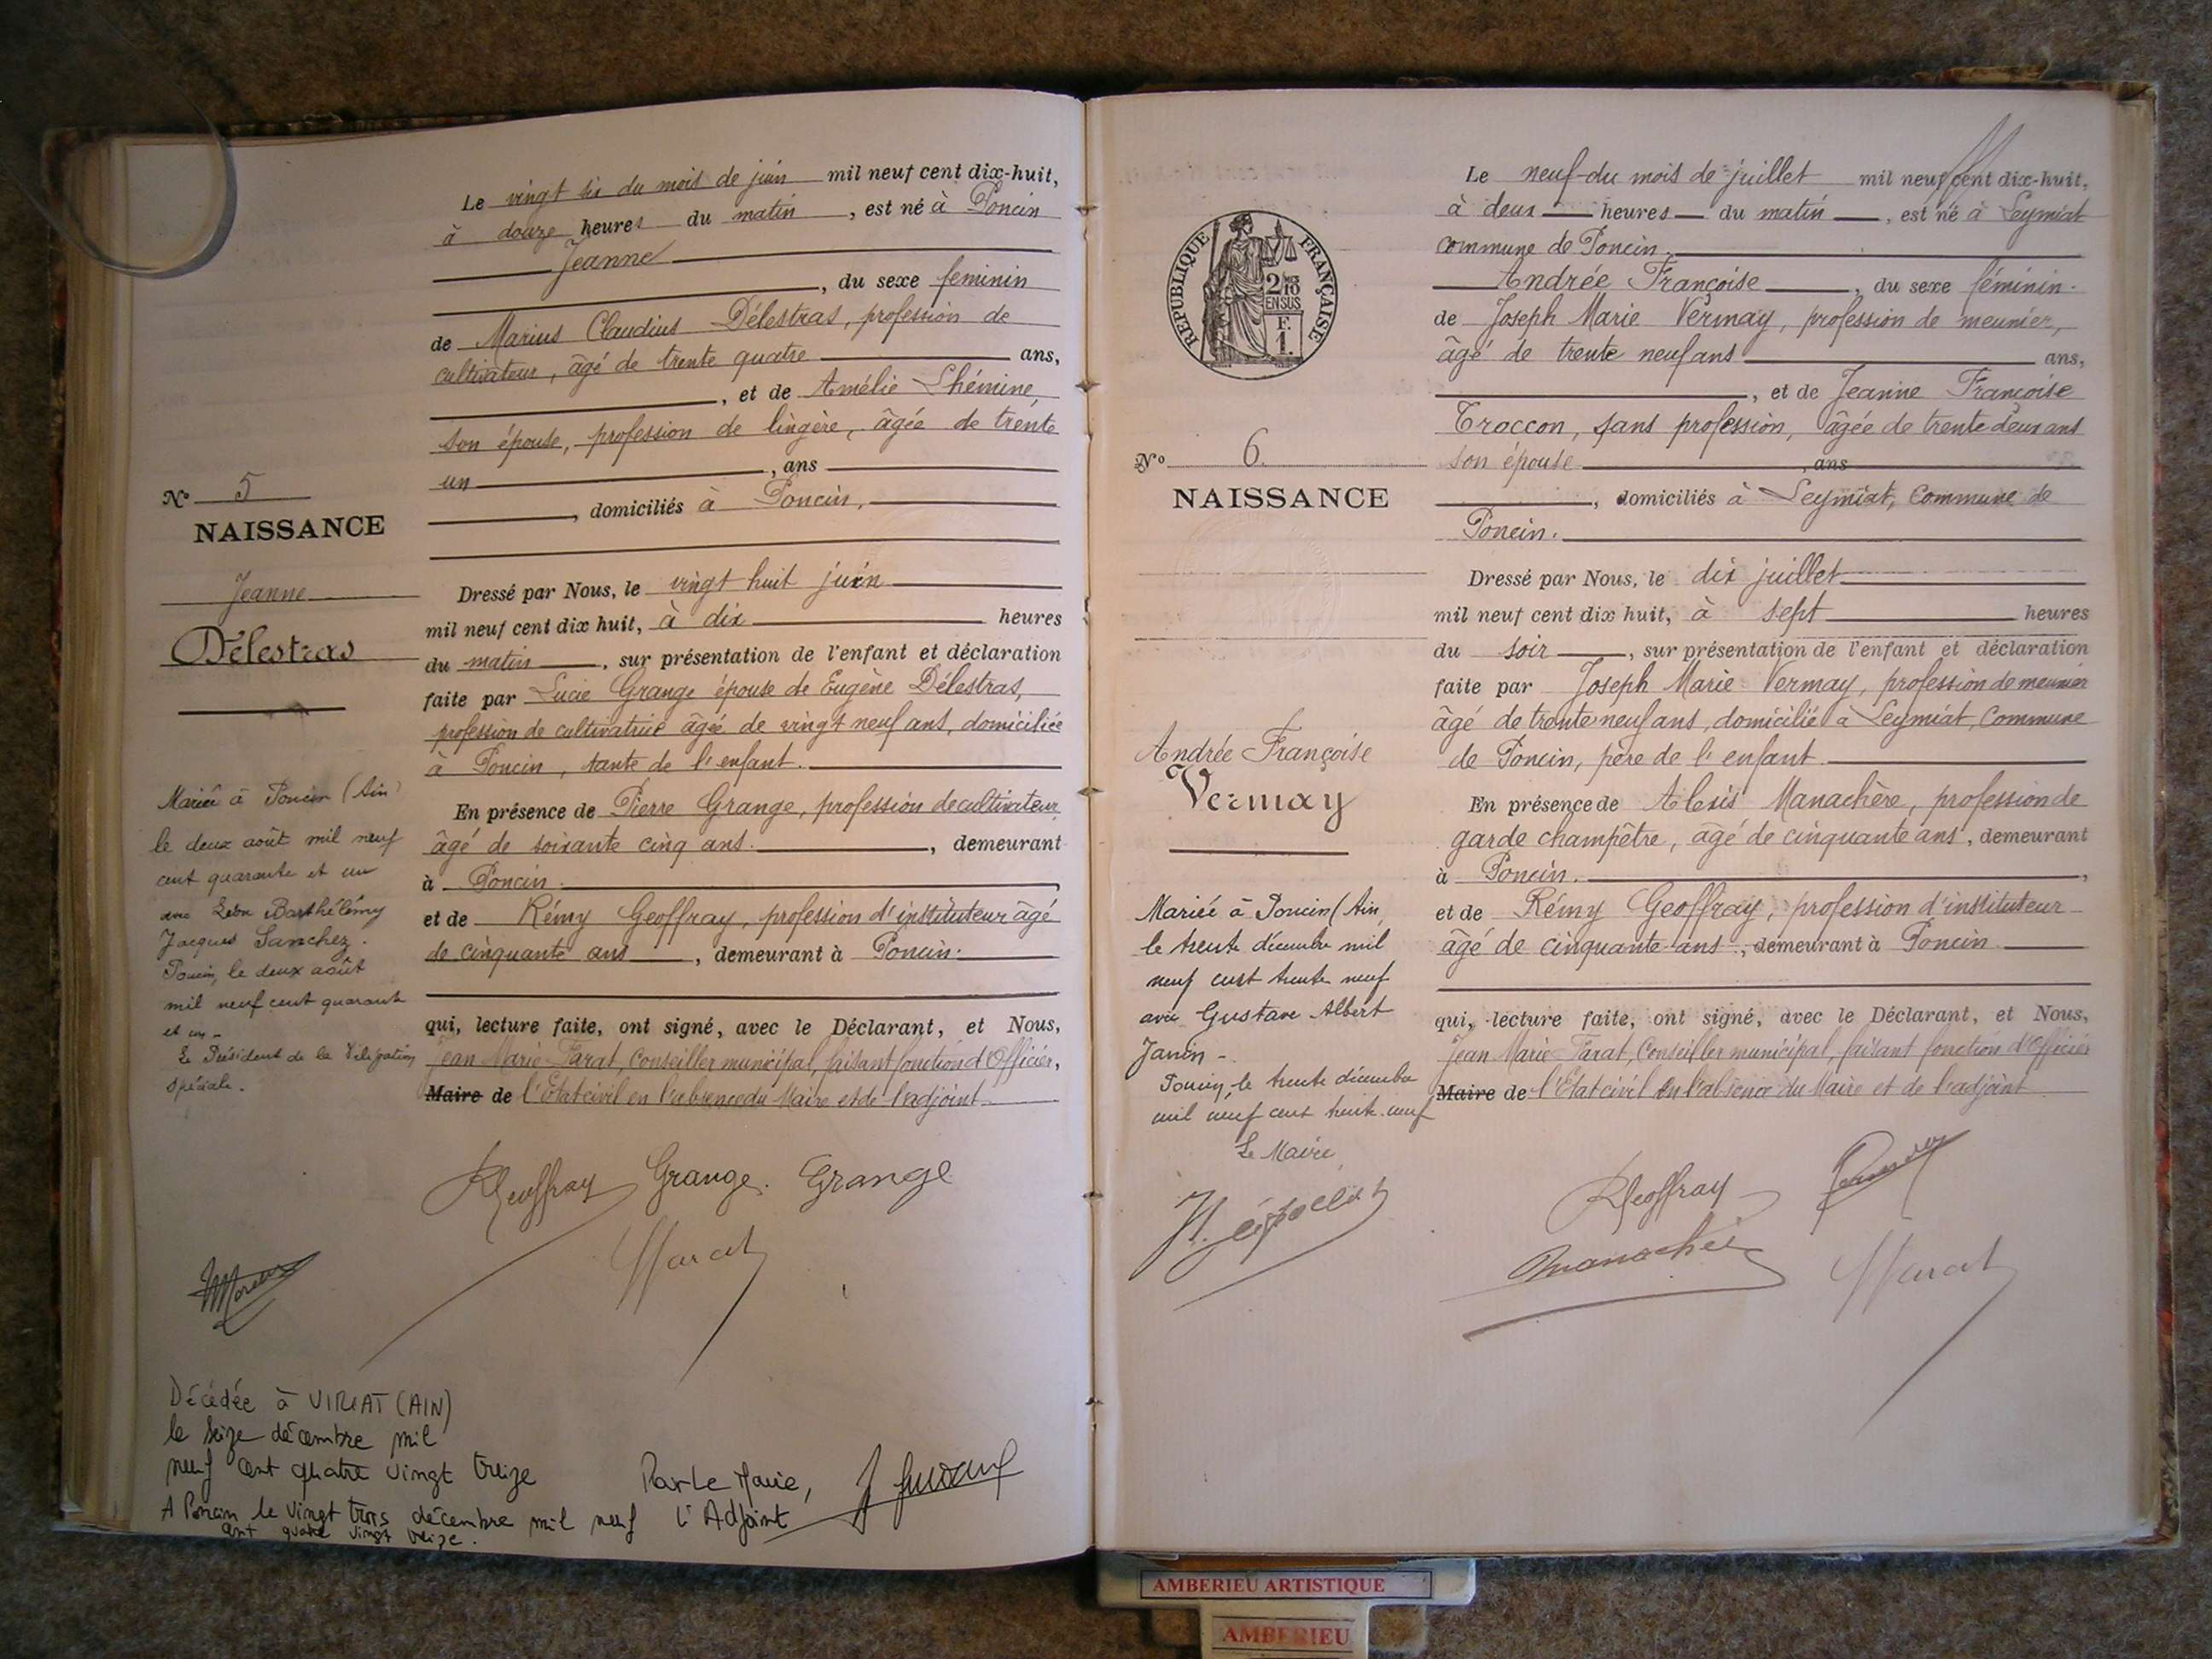 Le vingt six du mois de juin mil neuf cent dix-huit,
à douze heures du matin, est né à Poncin
Jeanne
, du sexe feminin
de Marius Claudius Délestras, profession de
cultivateur, âgé de trente quatre ans,
, et de Amélie Lhémine,
son épouse, profession de lingère, âgée de trente
un, ans
, domiciliés à Poncin,
N° 5
NAISSANCE
Jeanne
Délestras
Dressé par Nous, le vingt huit juin
mil neuf cent dix huit, à dix heures
du matin, sur présentation de l'enfant et déclaration
faite par Lucie Grange épouse de Eugène Délestras,
profession de cultivatrice âgée de vingt neuf ans, domiciliée
à Poncin, tante de l'enfant.
En présence de Pierre Grange, profession de cultivateur,
âgé de soixante cinq ans., demeurant
à Poncin.,
et de Rémy Geoffray, profession d'instituteur âgé
de cinquante ans, demeurant à Poncin.
qui, lecture faite, ont signé, avec le Déclarant, et Nous,
Jean Marie Farat, Conseiller municipal, faisant fonction d'Officier,
Maire de l'État civil en l'absence du Maire et de l'adjoint
Mariée à Poncin (Ain)
le deux août mil neuf
cent quarante et un
avec Léon Barthélémy
Jacques Sanchez.
Poncin, le deux août
mil neuf cent quarante
et un -
Le Président de la Délégation
spéciale.
RGeoffray Grange. Grange
Décédée à VIRIAT (AIN)
le seize décembre mil
neuf cent quatre vingt treize
A Poncin le vingt trois décembre mil neuf
cent quatre vingt treize.
Par Le Maire,
L'Adjoint
REPUBLIQUE FRANÇAISE
2/10
EN SUS
F.
1.
Le neuf du mois de juillet mil neuf cent dix-huit,
à deux heures du matin, est né à Leymiat
commune de Poncin.
Andrée Françoise, du sexe féminin.
de Joseph Marie Vermay, profession de meunier,
âgé de trente neuf ans ans,
, et de Jeanne Françoise
Troccon, sans profession, âgée de trente deux ans
son épouse, ans
, domiciliés à Leymiat, Commune de
Poncin.
N° 6.
NAISSANCE
Andrée Françoise
Vermay
Dressé par Nous, le dix juillet
mil neuf cent dix huit, à sept heures
du soir, sur présentation de l'enfant et déclaration
faite par Joseph Marie Vermay, profession de meunier
âgé de trente neuf ans, domicilié à Leymiat, Commune
de Poncin, père de l'enfant.
En présence de Alexis Manachère, profession de
garde champêtre, âgé de cinquante ans, demeurant
à Poncin.,
et de Rémy Geoffray, profession d'instituteur
âgé de cinquante ans, demeurant à Poncin
qui, lecture faite, ont signé, avec le Déclarant, et Nous,
Jean Marie Farat, Conseiller municipal, faisant fonction d'Officier
Maire de l'État civil en l'absence du Maire et de l'adjoint
Mariée à Poncin (Ain
le trente décembre mil
neuf cent trente neuf
avec Gustave Albert
Janin -
Poncin, le trente décembre
mil neuf cent trente neuf
Le Maire
RGeoffray
AMBERIEU ARTISTIQUE
AMBERIEU